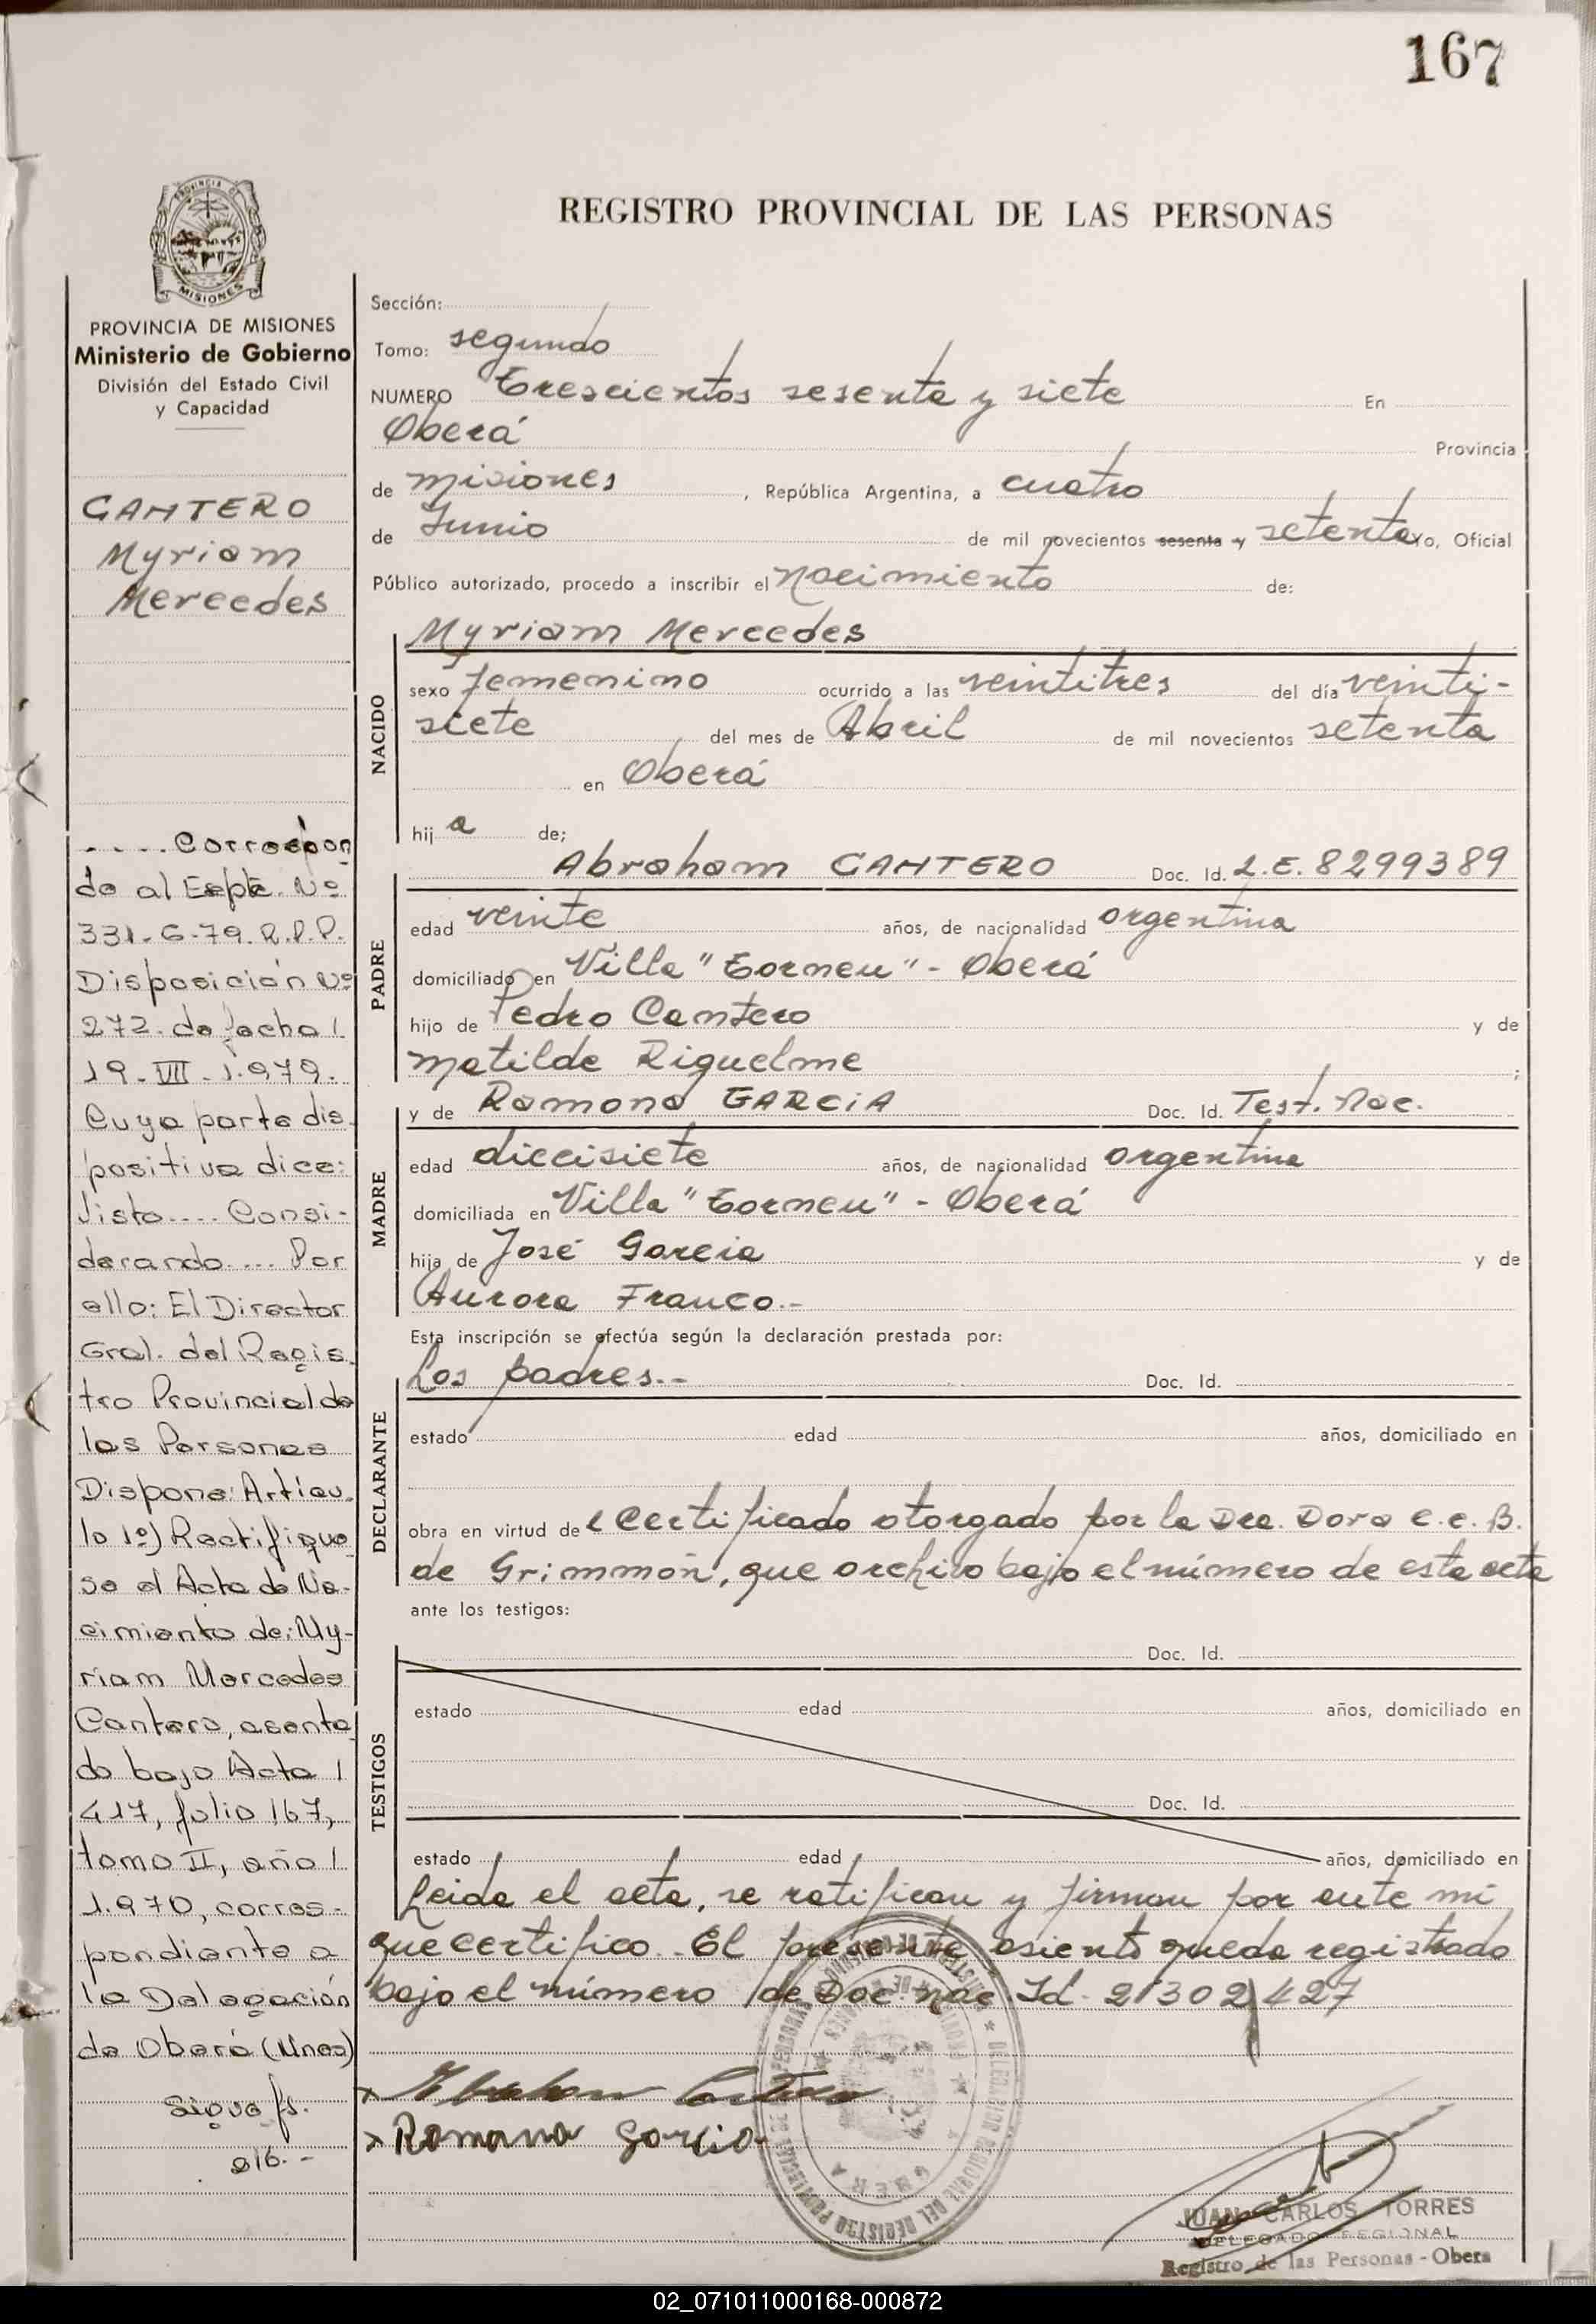 167
REGISTRO PROVINCIAL DE LAS PERSONAS
PROVINCIA DE MISIONES
Ministerio de Gobierno
División del Estado Civil
y Capacidad
CANTERO
Myriam
Mercedes
.... Correspon
de al Expte. Nº
331-G-79. R.P.P.
Disposición Nº
272. de fecha /
19-VII-1.979.
Cuya parte dis
positiva dice:
Visto.... Consi-
derando.... Por
ello: El Director
Gral. del Regis
tro Provincial de
las Personas
Dispone: Artícu
lo 1º) Rectifique
se el Acta de Na-
cimiento de: My-
riam Mercedes
Cantero, asenta
do bajo Acta /
417, folio 167,
tomo II, año /
1.970, corres-
pondiente a
la Delegación
de Oberá (Mnes)
Sigue fs.
216.-
Sección:
Tomo: segundo
NUMERO Trescientos sesenta y siete En
Oberá Provincia
de Misiones, República Argentina, a cuatro
de Junio de mil novecientos sesenta y setenta yo, Oficial
Público autorizado, procedo a inscribir el nacimiento de:
NACIDO
Myriam Mercedes
sexo femenino ocurrido a las veintitres del día veinti-
siete del mes de Abril de mil novecientos setenta
en Oberá
hija de;
PADRE
Abraham CANTERO Doc. Id. L.E. 8299389
edad veinte años, de nacionalidad argentina
domiciliado en Villa "Torneu" - Oberá
hijo de Pedro Cantero y de
Matilde Riquelme ;
MADRE
y de Ramona GARCIA Doc. Id. Test. Nac.
edad diecisiete años, de nacionalidad argentina
domiciliada en Villa "Torneu" - Oberá
hija de José Garcia y de
Aurora Franco.-
DECLARANTE
Esta inscripción se efectúa según la declaración prestada por:
Los padres.- Doc. Id.
estado edad años, domiciliado en
obra en virtud del certificado otorgado por la Dra. Dora e.c. B.
de Grimmón, que archivo bajo el número de esta acta
ante los testigos:
TESTIGOS
Doc. Id.
estado edad años, domiciliado en
Doc. Id.
estado edad años, domiciliado en
Leida el acta, se ratifican y firman por ante mi
que certifico.- El presente asiento queda registrado
bajo el número de Doc. Nac. Id. 21302427
Ramona Garcia
JUAN CARLOS TORRES
DELEGADO REGIONAL
Registro de las Personas - Obera
02_071011000168-000872